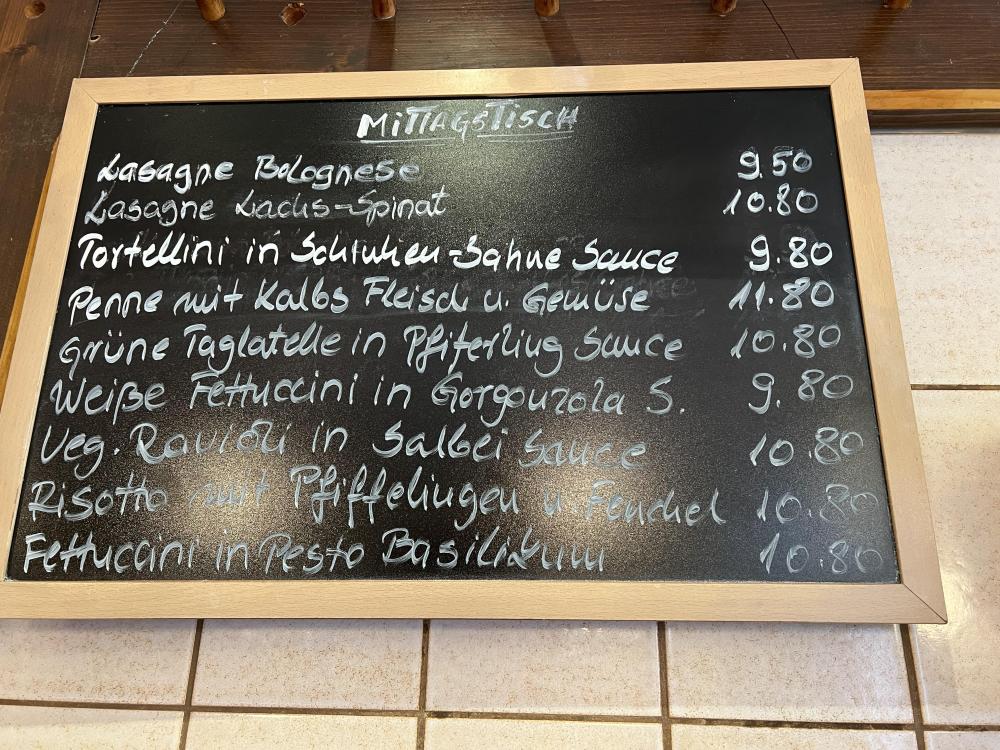 MITTAGSTISCH
Lasagne Bolognese 9.50
Lasagne Lachs-Spinat 10.80
Tortellini in Schinken-Sahne Sauce 9.80
Penne mit Kalbs Fleisch u. Gemüse 11.80
Grüne Taglatelle in Pfiferling Sauce 10.80
Weiße Fettuccini in Gorgonzola S. 9.80
Veg. Ravioli in Salbei Sauce 10.80
Risotto mit Pfiffelingen u Fenchel 10.80
Fettuccini in Pesto Basilikum 10.80